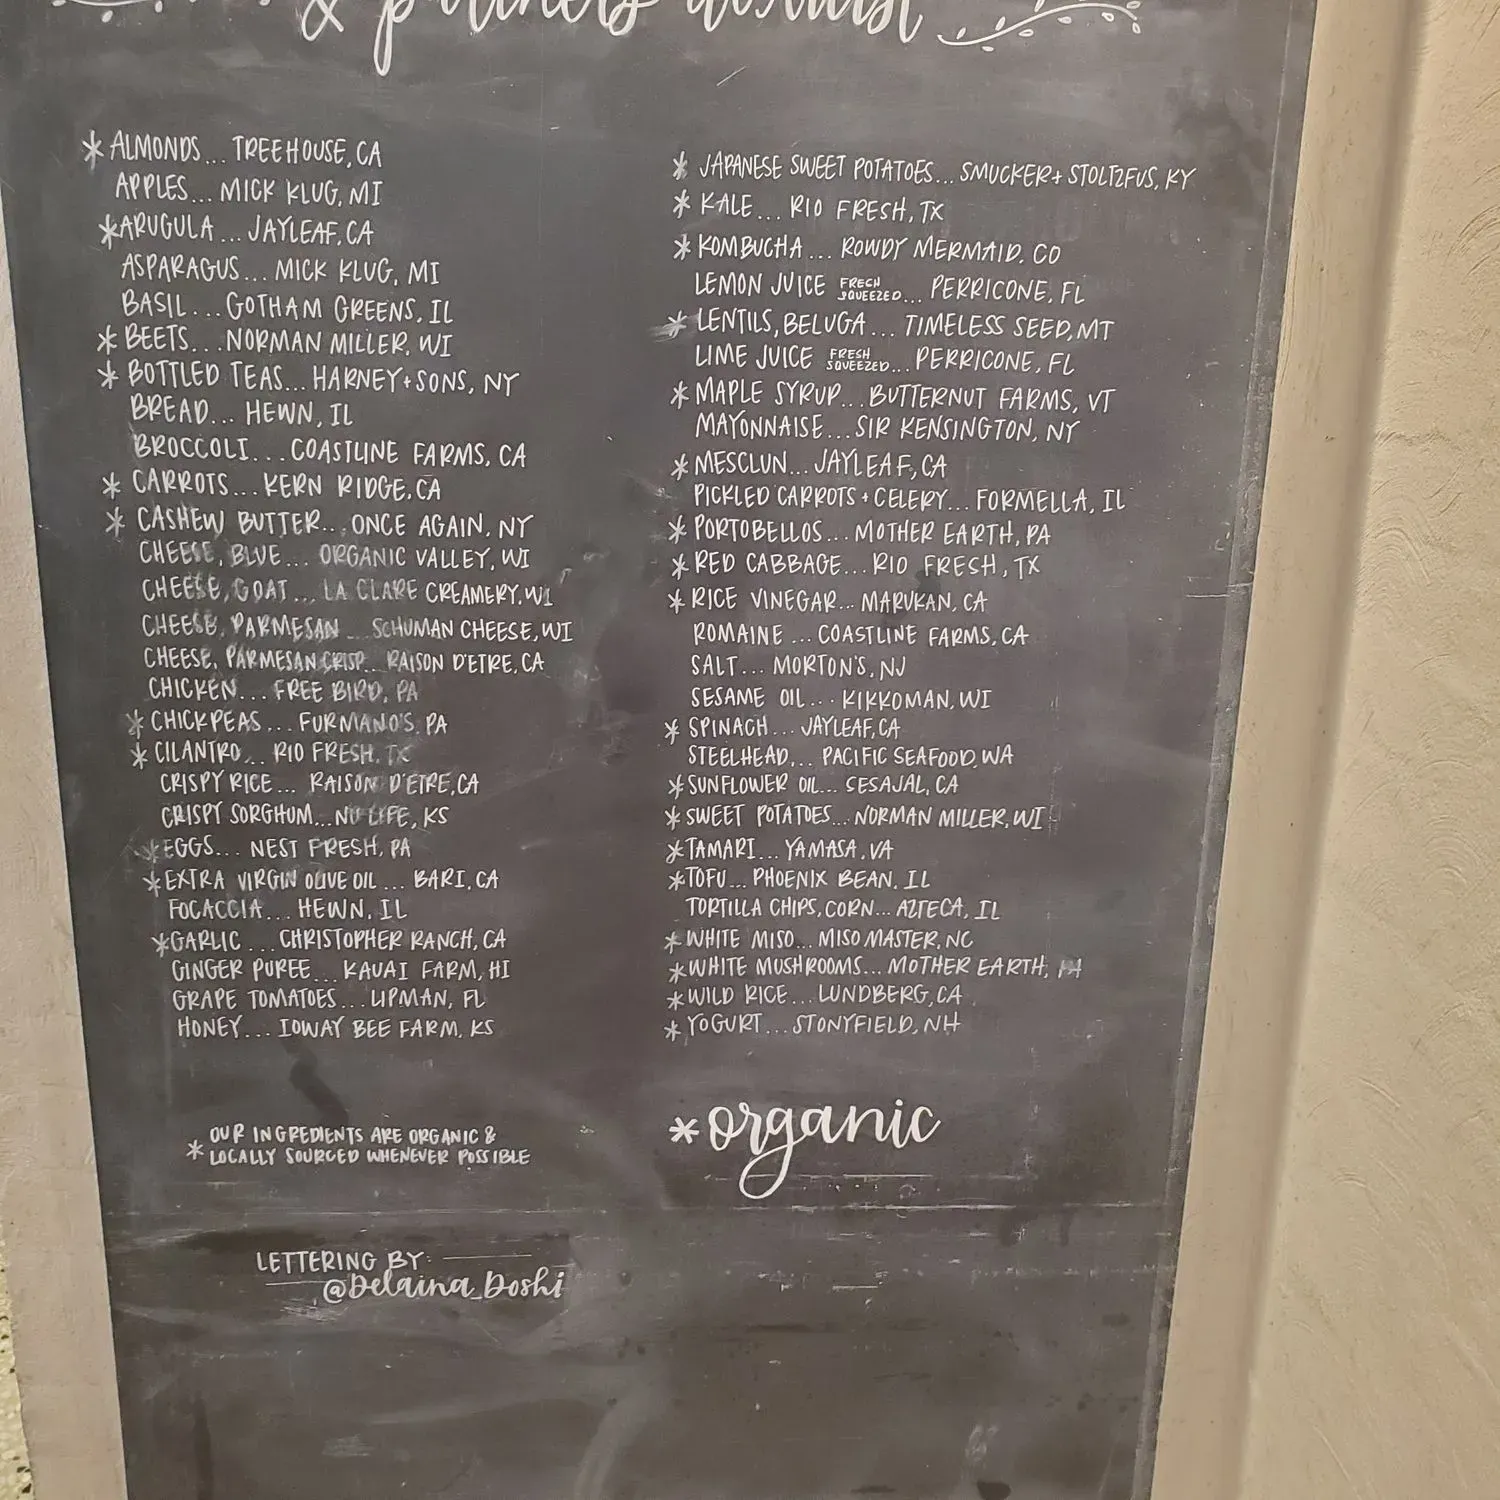 & partners
* ALMONDS... TREEHOUSE, CA
APPLES... MICK KLUG, MI
*ARUGULA... JAYLEAF, CA
ASPARAGUS... MICK KLUG, MI
BASIL... GOTHAM GREENS, IL
* BEETS... NORMAN MILLER, WI
* BOTTLED TEAS... HARNEY+SONS, NY
BREAD... HEWN, IL
BROCCOLI... COASTLINE FARMS, CA
* CARROTS... KERN RIDGE, CA
* CASHEW BUTTER... ONCE AGAIN, NY
CHEESE, BLUE... ORGANIC VALLEY, WI
CHEESE, GOAT... LA CLARE CREAMERY, WI
CHEESE, PARMESAN... SCHUMAN CHEESE, WI
CHEESE, PARMESAN CRISP... RAISON D'ETRE, CA
CHICKEN... FREE BIRD, PA
* CHICKPEAS... FURMANO'S, PA
* CILANTRO... RIO FRESH, TX
CRISPY RICE... RAISON D'ETRE, CA
CRISPY SORGHUM... NU LIFE, KS
*EGGS... NEST FRESH, PA
*EXTRA VIRGIN OLIVE OIL... BARI, CA
FOCACCIA... HEWN, IL
*GARLIC... CHRISTOPHER RANCH, CA
GINGER PUREE... KAUAI FARM, HI
GRAPE TOMATOES... LIPMAN, FL
HONEY... IOWAY BEE FARM, KS
* OUR INGREDIENTS ARE ORGANIC &
LOCALLY SOURCED WHENEVER POSSIBLE
LETTERING BY:
@Delaina_Doshi
* JAPANESE SWEET POTATOES... SMUCKER+STOLTZFUS, KY
* KALE... RIO FRESH, TX
* KOMBUCHA... ROWDY MERMAID, CO
LEMON JUICE FRESH SQUEEZED... PERRICONE, FL
* LENTILS, BELUGA... TIMELESS SEED, MT
LIME JUICE FRESH SQUEEZED... PERRICONE, FL
* MAPLE SYRUP... BUTTERNUT FARMS, VT
MAYONNAISE... SIR KENSINGTON, NY
* MESCLUN... JAYLEAF, CA
PICKLED CARROTS + CELERY... FORMELLA, IL
* PORTOBELLOS... MOTHER EARTH, PA
* RED CABBAGE... RIO FRESH, TX
* RICE VINEGAR... MARUKAN, CA
ROMAINE... COASTLINE FARMS, CA
SALT... MORTON'S, NJ
SESAME OIL... KIKKOMAN, WI
* SPINACH... JAYLEAF, CA
STEELHEAD... PACIFIC SEAFOOD, WA
*SUNFLOWER OIL... CESAJAL, CA
* SWEET POTATOES... NORMAN MILLER, WI
*TAMARI... YAMASA, VA
*TOFU... PHOENIX BEAN, IL
TORTILLA CHIPS, CORN... AZTECA, IL
*WHITE MISO... MISO MASTER, NC
*WHITE MUSHROOMS... MOTHER EARTH, PA
*WILD RICE... LUNDBERG, CA
*YOGURT... STONYFIELD, NH
*organic